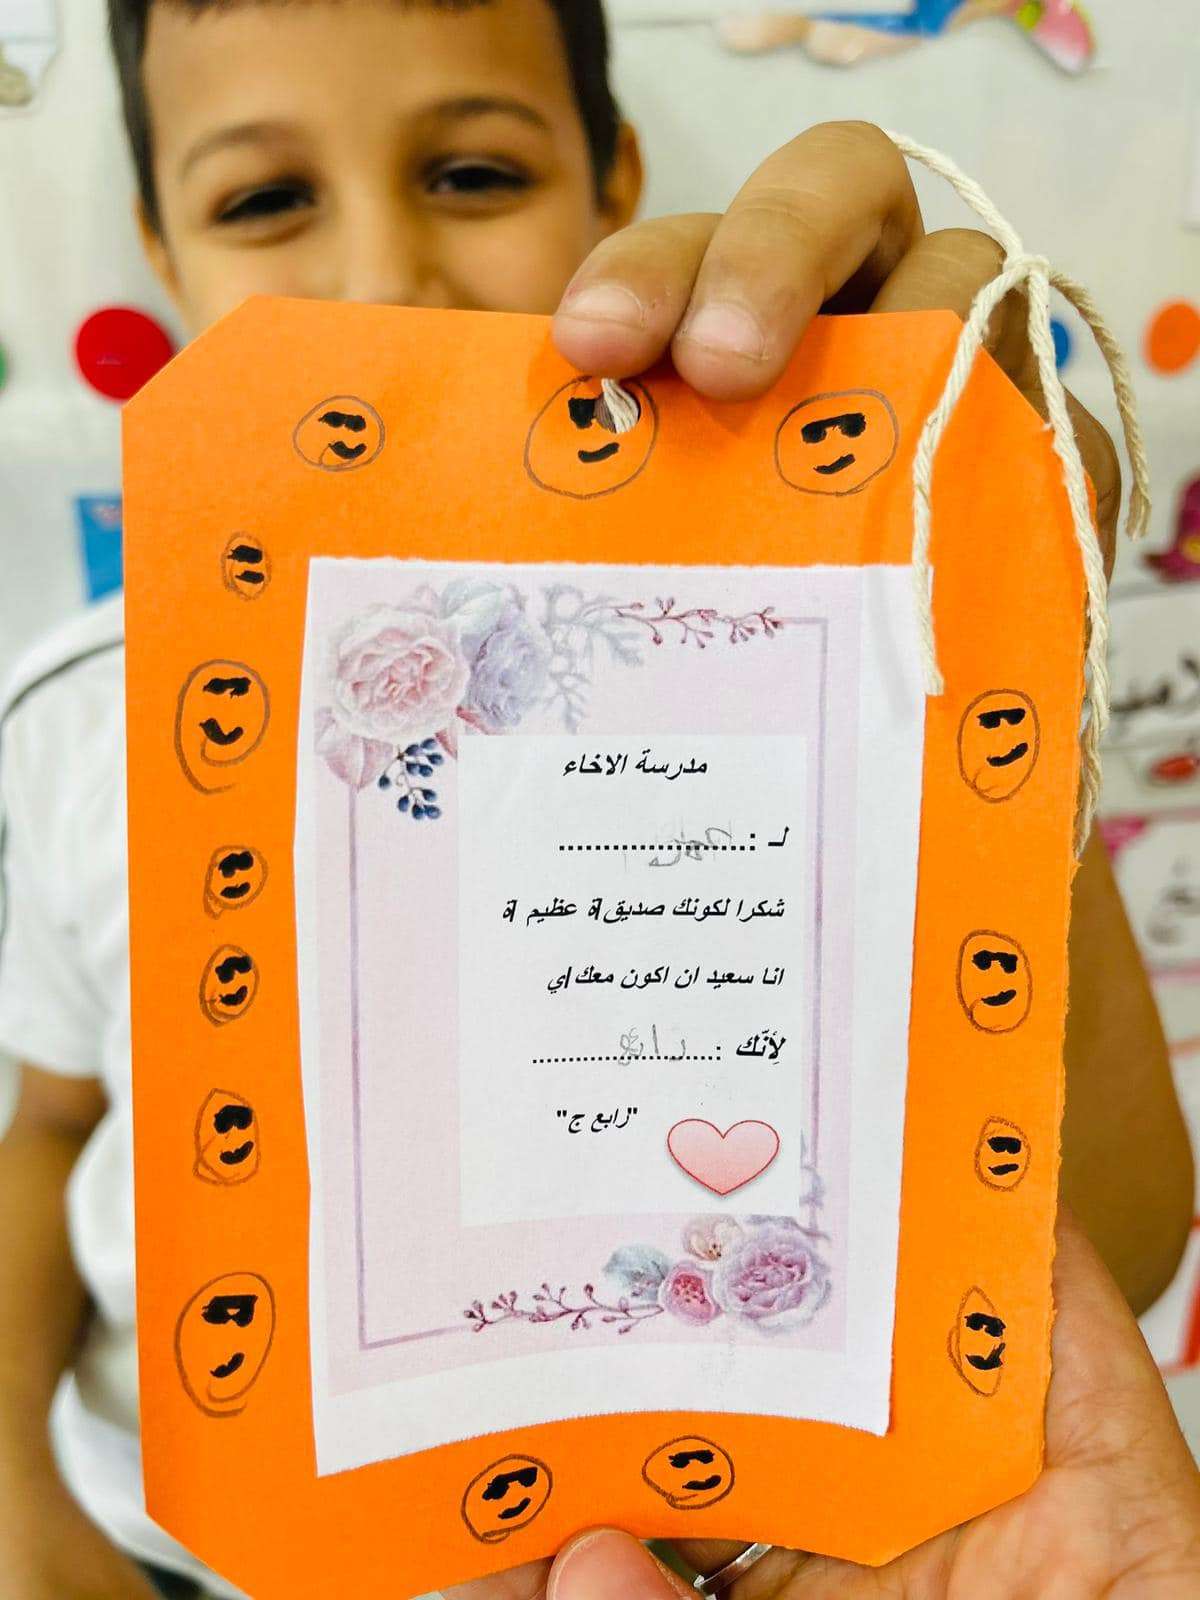 مدرسة الاخاء
لـ :......................
شكرا لكونك صديق/ة عظيم /ة
انا سعيد ان اكون معك/ي
لِأنّك :..................... رائع
"رابع ج"